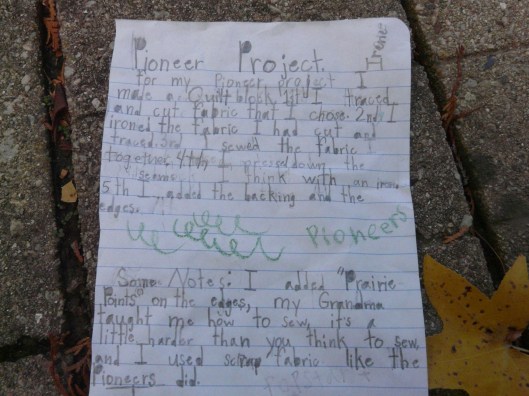 Pioneer Project.
For my Pioneer project I
made a Quilt block. 1st I traced
and cut fabric that I chose. 2nd I
ironed the fabric I had cut and
traced. 3rd I sewed the fabric
together. 4th I pressed down the
seams I think with an iron.
5th I added the backing and the
edges.
Pioneers
Some Notes: I added "Prairie
Points" on the edges, my Grandma
taught me how to sew, it's a
little harder than you think to sew,
and I used scrap fabric like the
Pioneers did.